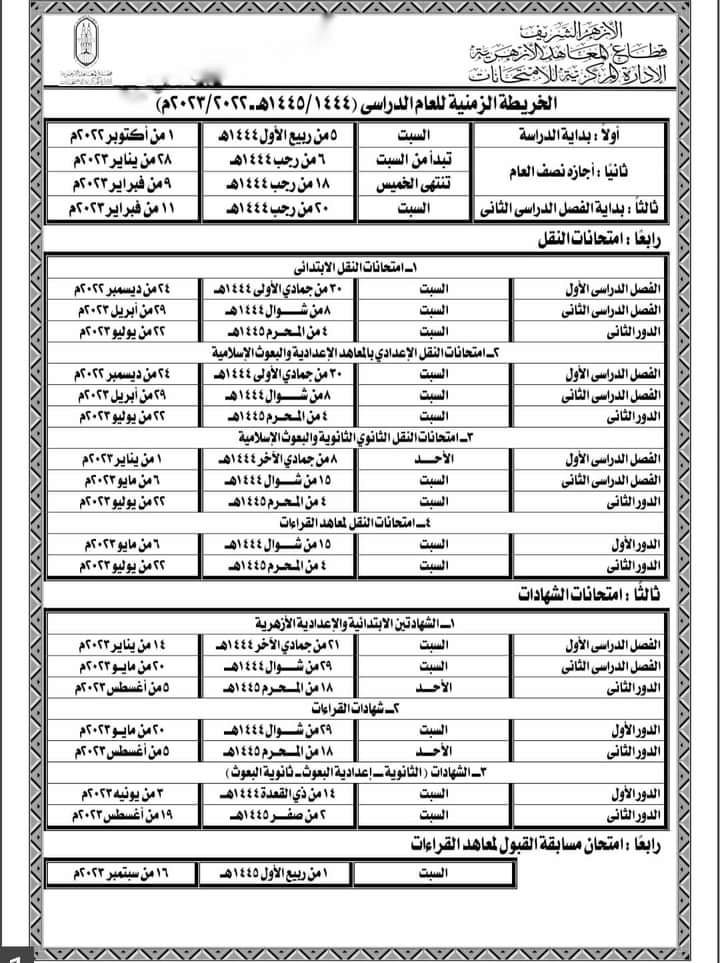 الأزهر الشريف
قطاع المعاهد الأزهرية
الإدارة المركزية للامتحانات
الخريطة الزمنية للعام الدراسى (١٤٤٥/١٤٤٤هـ-٢٠٢٣/٢٠٢٢م)
أولاً : بداية الدراسة السبت ٥ من ربيع الأول ١٤٤٤هـ ١ من أكتوبر ٢٠٢٢م
ثانيًا : أجازه نصف العام تبدأ من السبت ٦ من رجب ١٤٤٤هـ ٢٨ من يناير ٢٠٢٣م
تنتهى الخميس ١٨ من رجب ١٤٤٤هـ ٩ من فبراير ٢٠٢٣م
ثالثاً : بداية الفصل الدراسى الثانى السبت ٢٠ من رجب ١٤٤٤هـ ١١ من فبراير ٢٠٢٣م
رابعًا : امتحانات النقل
١ـ امتحانات النقل الابتدائى
الفصل الدراسى الأول السبت ٣٠ من جمادي الأولى ١٤٤٤هـ ٢٤ من ديسمبر ٢٠٢٢م
الفصل الدراسى الثانى السبت ٨ من شـــوال ١٤٤٤هـ ٢٩ من أبريل ٢٠٢٣م
الدور الثانى السبت ٤ من المحـرم ١٤٤٥هـ ٢٢ من يوليو ٢٠٢٣م
٢ـ امتحانات النقل الإعدادي بالمعاهد الإعدادية والبعوث الإسلامية
الفصل الدراسى الأول السبت ٣٠ من جمادي الأولى ١٤٤٤هـ ٢٤ من ديسمبر ٢٠٢٢م
الفصل الدراسى الثانى السبت ٨ من شـــوال ١٤٤٤هـ ٢٩ من أبريل ٢٠٢٣م
الدور الثانى السبت ٤ من المحـرم ١٤٤٥هـ ٢٢ من يوليو ٢٠٢٣م
٣ـ امتحانات النقل الثانوي الثانوية والبعوث الإسلامية
الفصل الدراسى الأول الأحـــد ٨ من جمادي الآخر ١٤٤٤هـ ١ من يناير ٢٠٢٣م
الفصل الدراسى الثانى السبت ١٥ من شـــوال ١٤٤٤هـ ٦ من مايو ٢٠٢٣م
الدور الثانى السبت ٤ من المحـرم ١٤٤٥هـ ٢٢ من يوليو ٢٠٢٣م
٤ـ امتحانات النقل لمعاهد القراءات
الدور الأول السبت ١٥ من شـــوال ١٤٤٤هـ ٦ من مايو ٢٠٢٣م
الدور الثانى السبت ٤ من المحـرم ١٤٤٥هـ ٢٢ من يوليو ٢٠٢٣م
ثالثًا : امتحانات الشهادات
١ـ الشهادتين الابتدائية والإعدادية الأزهرية
الفصل الدراسى الأول السبت ٢١ من جمادي الآخر ١٤٤٤هـ ١٤ من يناير ٢٠٢٣م
الفصل الدراسى الثانى السبت ٢٩ من شـــوال ١٤٤٤هـ ٢٠ من مايو ٢٠٢٣م
الدور الثانى الأحـــد ١٨ من المحـرم ١٤٤٥هـ ٥ من أغسطس ٢٠٢٣م
٢ـ شهادات القراءات
الدور الأول السبت ٢٩ من شـــوال ١٤٤٤هـ ٢٠ من مايو ٢٠٢٣م
الدور الثانى الأحـــد ١٨ من المحـرم ١٤٤٥هـ ٥ من أغسطس ٢٠٢٣م
٣ـ الشهادات (الثانوية ـ إعدادية البعوث ـ ثانوية البعوث)
الدور الأول السبت ١٤ من ذي القعدة ١٤٤٤هـ ٣ من يونيه ٢٠٢٣م
الدور الثانى السبت ٢ من صفـــر ١٤٤٥هـ ١٩ من أغسطس ٢٠٢٣م
رابعًا : امتحان مسابقة القبول لمعاهد القراءات
السبت ١ من ربيع الأول ١٤٤٥هـ ١٦ من سبتمبر ٢٠٢٣م